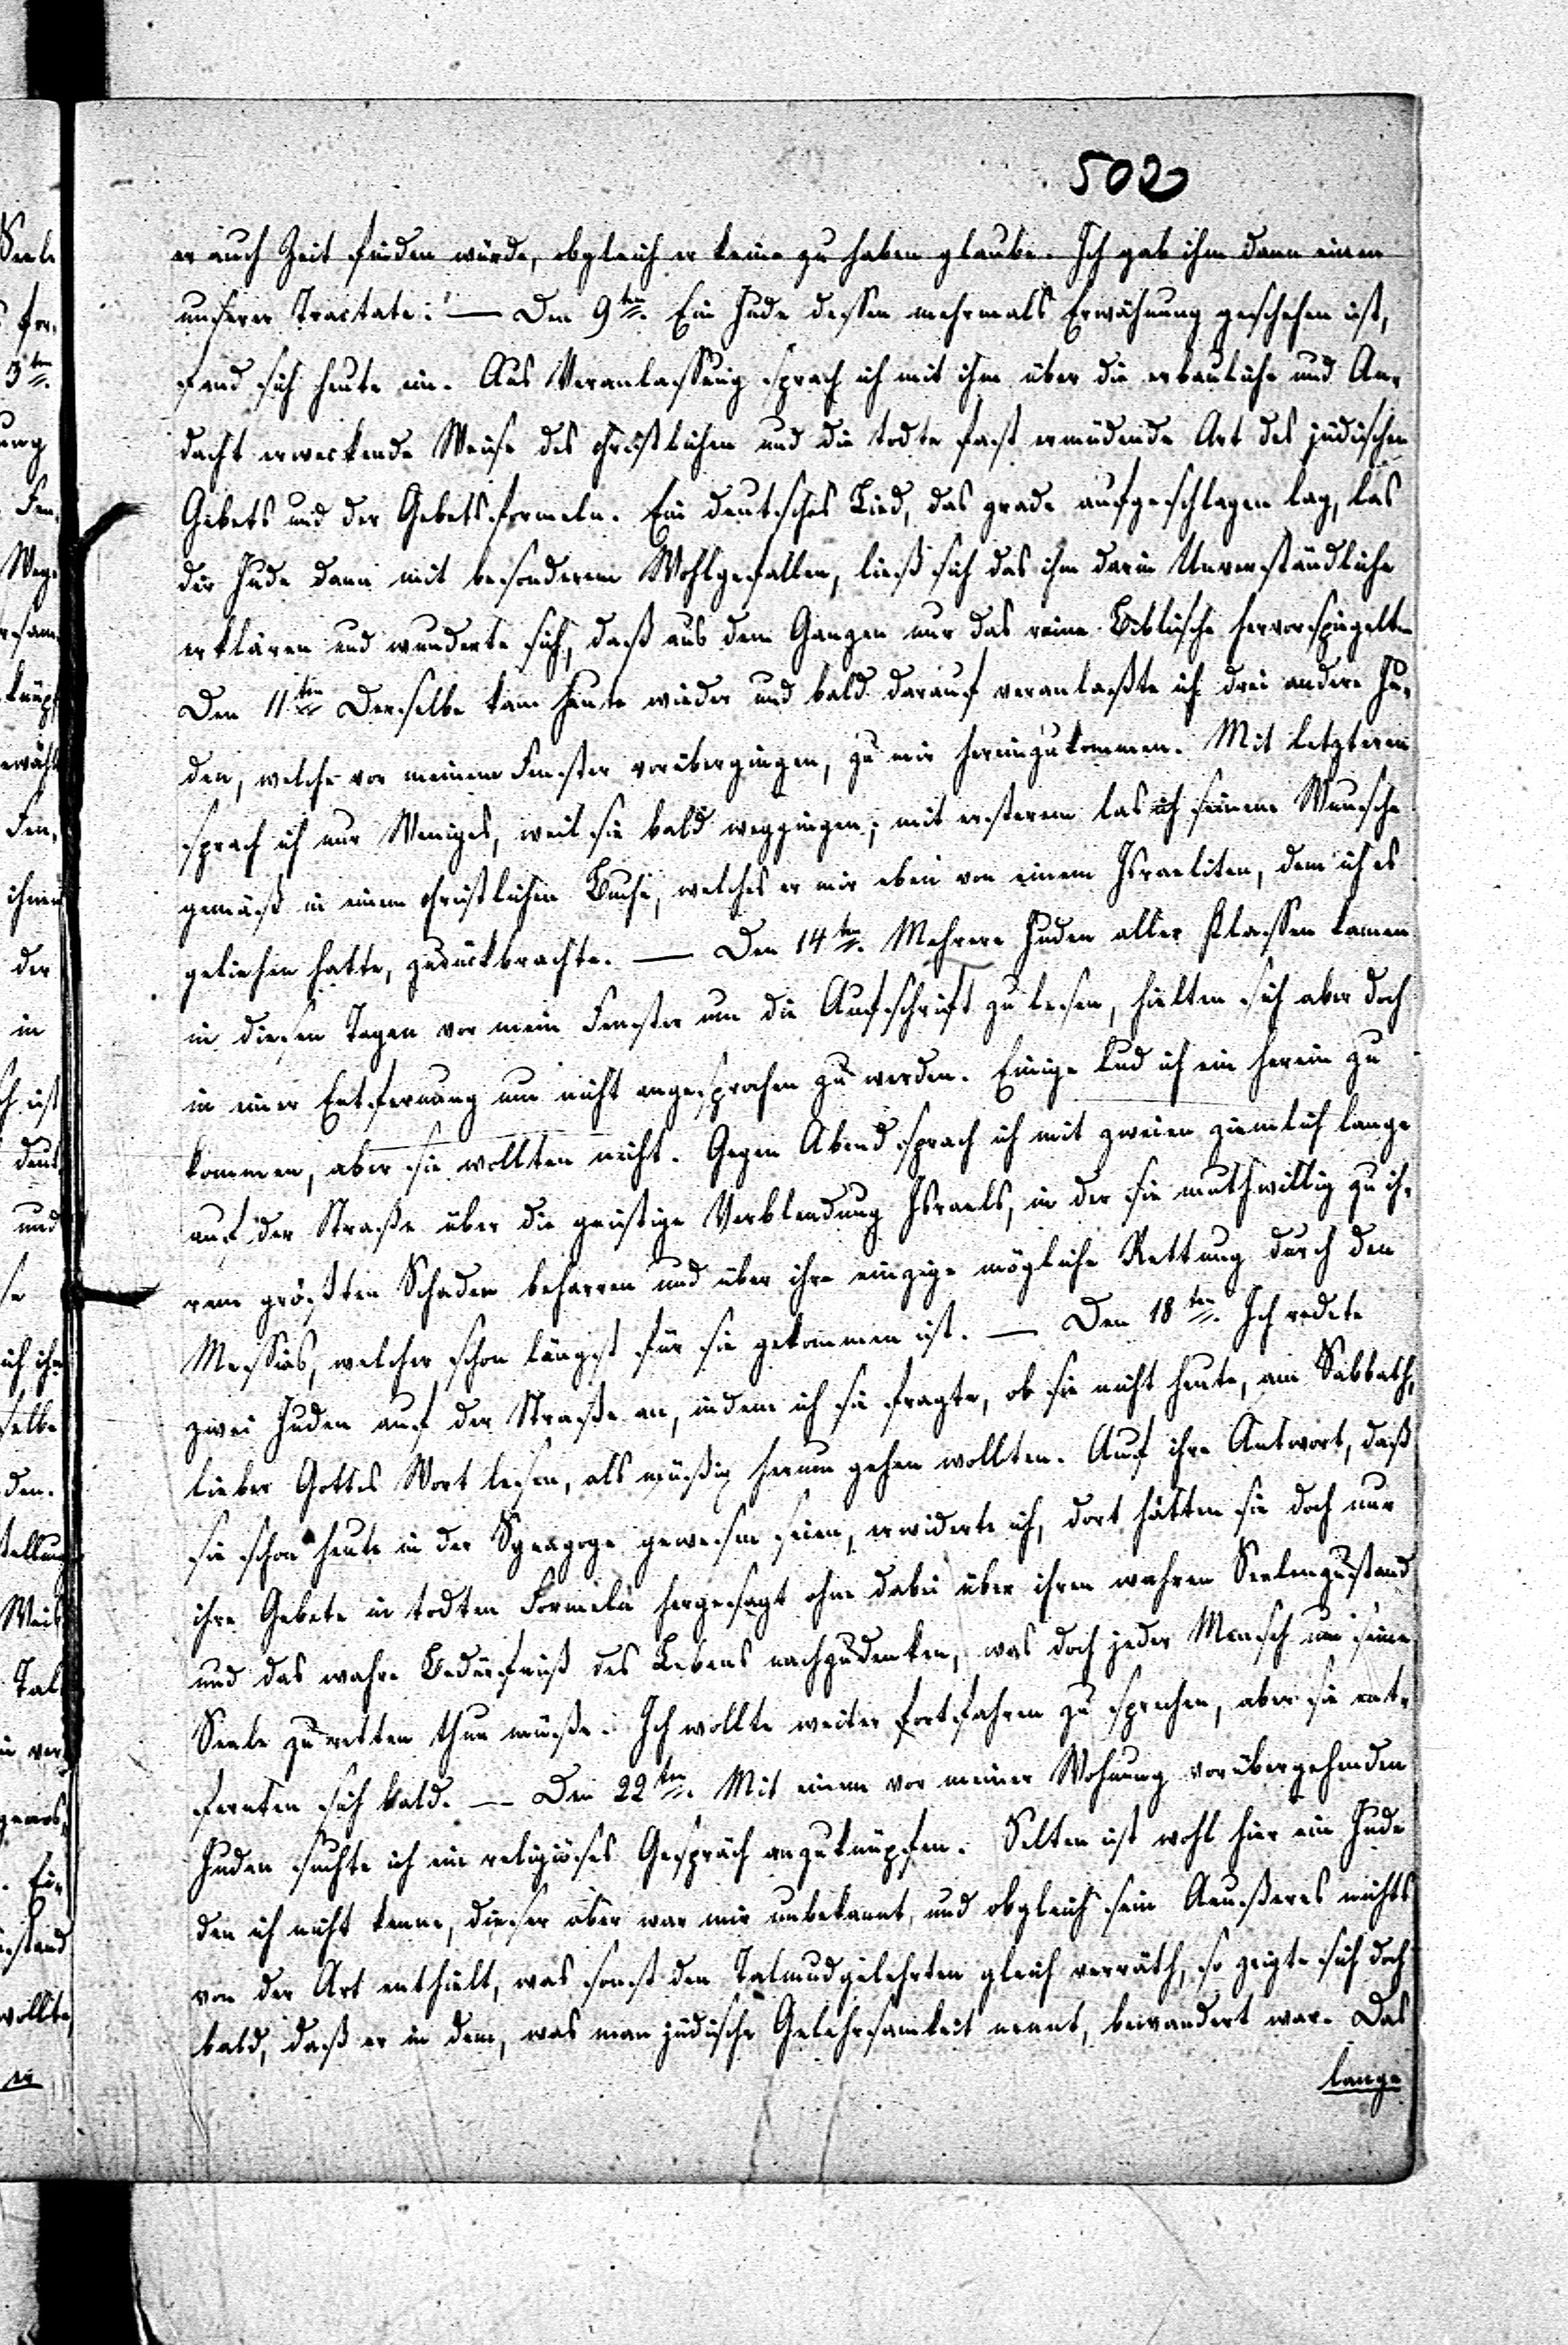 502
er auch Zeit finden würde, obgleich er keine zu haben glaube. Ich gab ihm dann einen
unserer Tractate. — Den 9ten. Ein Jude dessen mehrmals Erwähnung geschehen ist,
fand sich heute ein. Aus Veranlassung sprach ich mit ihm über die erbauliche und An-
dacht erweckende Weise des christlichen und die todte fast ermüdende Art des jüdischen
Gebets und der Gebetsformeln. Ein deutsches Lied, das grade aufgeschlagen lag, las
der Jude dann mit besonderem Wohlgefallen, ließ sich das ihm darin Unverständliche
erklären und wunderte sich, daß aus dem Ganzen nur das reine Biblische hervorspiegelte.
Den 11ten Derselbe kam heute wieder und bald darauf veranlaßte ich drei andere Ju-
den, welche vor meinem Fenster vorübergingen, zu mir hereinzukommen. Mit letzteren
sprach ich nur Weniges, weil sie bald weggingen; mit ersterem las ich seinem Wunsche
gemäß in einem christlichen Buche, welches er mir eben von einem Israeliten, dem ich es
geliehen hatte, zurückbrachte. — Den 14ten. Mehrere Juden aller Klassen kamen
in diesen Tagen vor mein Fenster um die Aufschrift zu lesen, hielten sich aber doch
in einer Entfernung um nicht angesprochen zu werden. Einige lud ich ein herein zu
kommen, aber sie wollten nicht. Gegen Abend sprach ich mit zweien ziemlich lange
auf der Straße über die geistige Verblendung Israels, in der sie muthwillig zu ih-
rem größten Schaden beharren und über ihre einzige mögliche Rettung durch den
Messias, welcher schon längst für sie gekommen ist. — Den 18ten. Ich redete
zwei Juden auf der Straße an, indem ich sie fragte, ob sie nicht heute, am Sabbath,
lieber Gottes Wort lesen, als müßig herum gehen wollten. Auf ihre Antwort, daß
sie schon heute in der Synagoge gewesen seien, erwiderte ich, dort hätten sie doch nur
ihre Gebete in todten Formeln hergesagt ohne dabei über ihren wahren Seelenzustand
und das wahre Bedürfniß des Lebens nachzudenken, was doch jeder Mensch um seine
Seele zu retten thun müße. Ich wollte weiter fortfahren zu sprechen, aber sie ent-
fernten sich bald. — Den 22ten. Mit einem vor meiner Wohnung vorübergehenden
Juden suchte ich ein religiöses Gespräch anzuknüpfen. Selten ist wohl hier ein Jude
den ich nicht kenne, dieser aber war mir unbekannt, und obgleich sein Aeußeres nichts
von der Art enthielt, was sonst den Talmudgelehrten gleich verräth, so zeigte sich doch
bald, daß er in dem, was man jüdische Gelehrsamkeit nennt, bewandert war. Das
lange